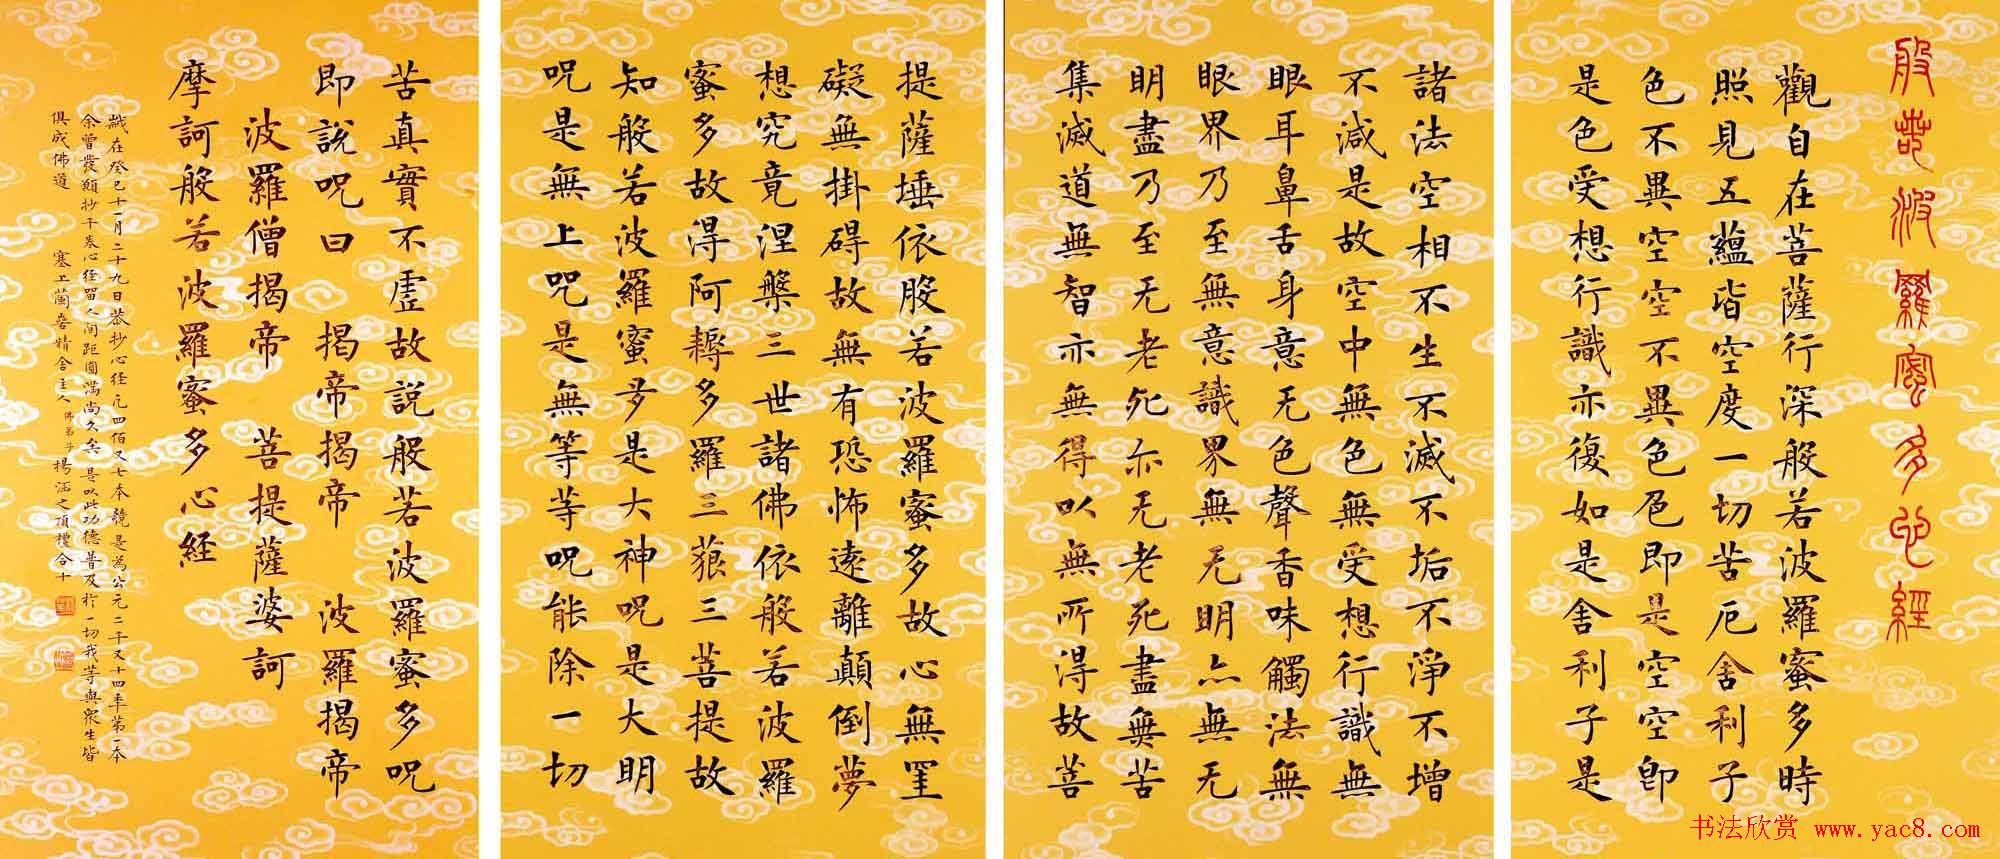 般若波羅蜜多心經
觀自在菩薩行深般若波羅蜜多時
照見五蘊皆空度一切苦厄舍利子
色不異空空不異色色即是空空即
是色受想行識亦復如是舍利子是
諸法空相不生不滅不垢不淨不增
不減是故空中無色無受想行識無
眼耳鼻舌身意无色聲香味觸法無
眼界乃至無意識界無无明亦無无
明盡乃至无老死亦无老死盡無苦
集滅道無智亦無得以無所得故菩
提薩埵依般若波羅蜜多故心無罣
礙無掛碍故無有恐怖遠離顛倒夢
想究竟涅槃三世諸佛依般若波羅
蜜多故得阿耨多羅三藐三菩提故
知般若波羅蜜多是大神呪是大明
呪是無上呪是無等等呪能除一切
苦真實不虛故說般若波羅蜜多呪
即說呪曰 揭帝揭帝 波羅揭帝
波羅僧揭帝 菩提薩婆訶
摩訶般若波羅蜜多心経
歲在癸巳十一月二十九日恭抄心経凡四佰又七本競是為公元二千又十四年第一本
余曾發願抄千卷心経留人間距圓滿尚久矣是以此功德普及於一切我等與眾生皆
俱成佛道 塞上蘭 精舍主人佛弟子楊涵之頂禮合十
书法欣赏 www.yac8.com